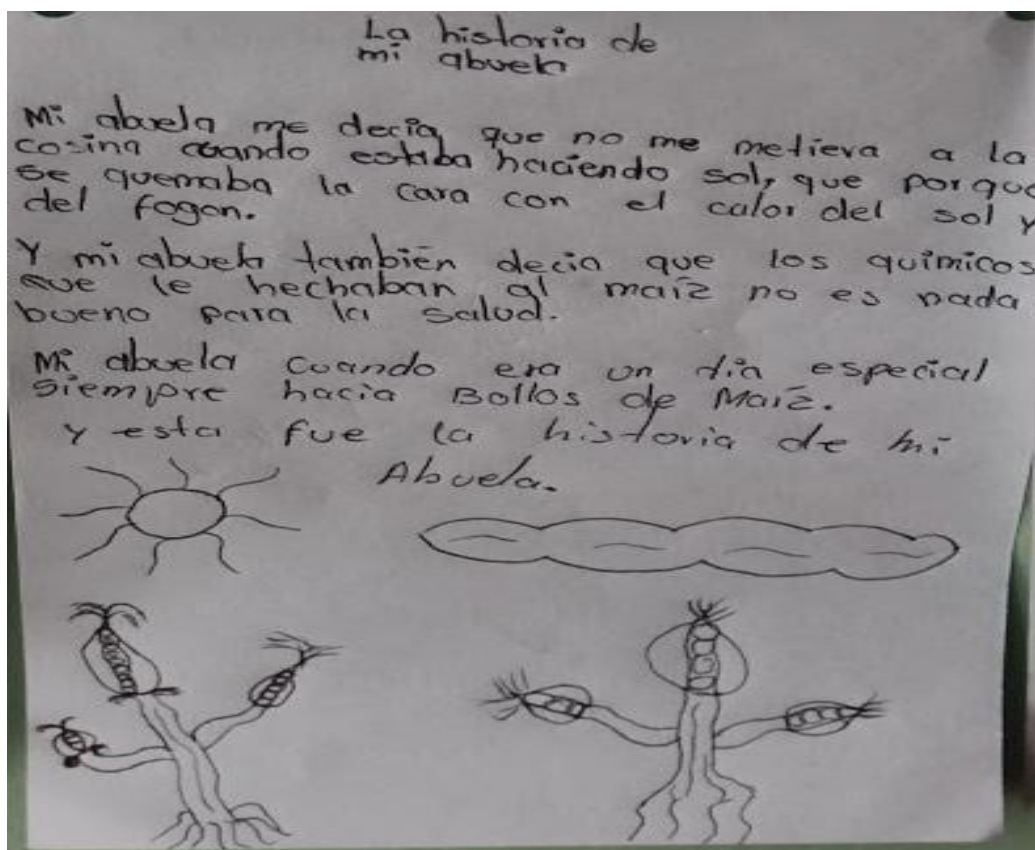 La historia de
mi abuela
Mi abuela me decia que no me metiera a la
cosina cuando estaba haciendo sol, que porque
se quemaba la cara con el calor del sol y
del fogon.
Y mi abuela también decia que los quimicos
que le hechaban al maiz no es nada
bueno para la salud.
Mi abuela cuando era un dia especial
siempre hacia Bollos de Maiz.
y esta fue la historia de mi
Abuela.